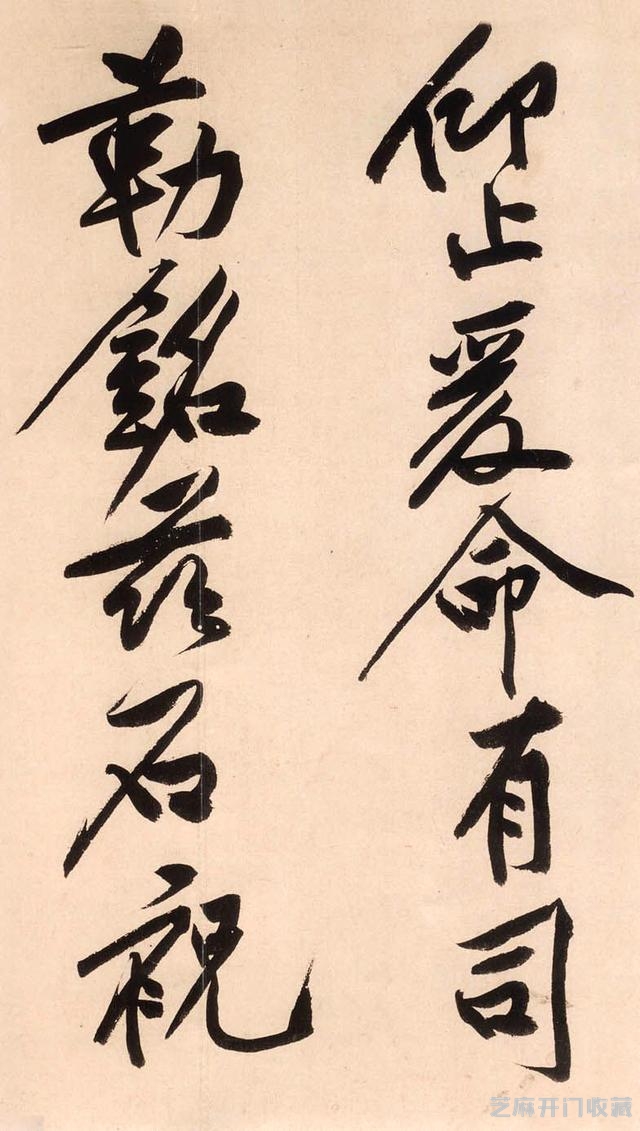 仰止爰命有司
勒銘茲石祝
芝麻开门收藏